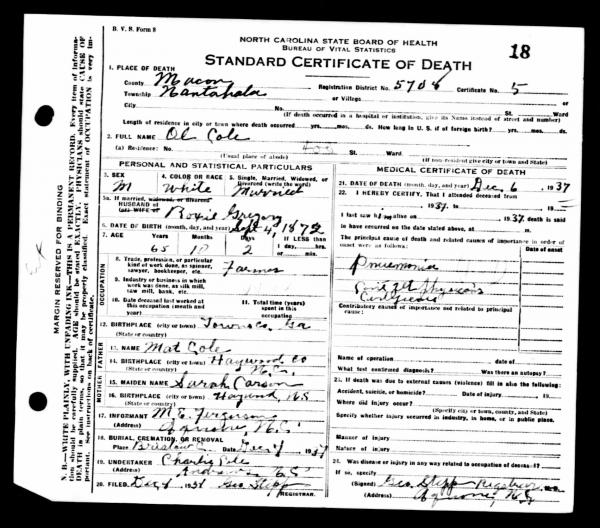 B. V. S. Form 8
NORTH CAROLINA STATE BOARD OF HEALTH
BUREAU OF VITAL STATISTICS
18
STANDARD CERTIFICATE OF DEATH
1. PLACE OF DEATH
County Macon Registration District No. 5706 Certificate No. 5
Township Nantahala or Village or
City No. St. Ward
(If death occurred in a hospital or institution, give its NAME instead of street and number)
Length of residence in city or town where death occurred yrs. mos. ds. How long in U. S. if of foreign birth? yrs. mos. ds.
2. FULL NAME Ol Cole
(a) Residence: No. St. Ward.
(Usual place of abode) (If non-resident give city or town and State)
PERSONAL AND STATISTICAL PARTICULARS
3. SEX 4. COLOR OR RACE 5. Single, Married, Widowed, or Divorced (write the word)
M White Married
5a. If married, widowed, or divorced
HUSBAND of
(or) WIFE of Gregory
6. DATE OF BIRTH (month, day, and year) Sept 4, 1872
7. AGE Years Months Days If LESS than
65 2 1 day, hrs.
or min.
OCCUPATION
8. Trade, profession, or particular kind of work done, as spinner, sawyer, bookkeeper, etc. Farmer
9. Industry or business in which work was done, as silk mill, saw mill, bank, etc.
10. Date deceased last worked at this occupation (month and year)
11. Total time (years) spent in this occupation
12. BIRTHPLACE (city or town) Towns Co, Ga
(State or country)
FATHER
13. NAME Mat Cole
14. BIRTHPLACE (city or town) Haywood Co
(State or country) N.C.
MOTHER
15. MAIDEN NAME Sarah Carson
16. BIRTHPLACE (city or town) Haywood, N.C.
(State or country)
17. INFORMANT M. E. Ferguson
(Address) N.C.
18. BURIAL, CREMATION, OR REMOVAL
Place Date Dec 1937
19. UNDERTAKER Charlie Cole
(Address) Andrews N.C.
20. FILED Dec 1937 Geo Stepp
REGISTRAR.
MEDICAL CERTIFICATE OF DEATH
21. DATE OF DEATH (month, day, and year) Dec, 6, 1937
22. I HEREBY CERTIFY, That I attended deceased from
, 1937, to , 19
I last saw h alive on , 1937, death is said
to have occurred on the date stated above, at m.
The principal cause of death and related causes of importance in order of onset were as follows: Date of onset
Pneumonia
Physicians
Contributory causes of importance not related to principal cause:
Name of operation date of
What test confirmed diagnosis? Was there an autopsy?
23. If death was due to external causes (violence) fill in also the following:
Accident, suicide, or homicide? Date of injury 19
Where did injury occur?
(Specify city or town, county, and State)
Specify whether injury occurred in industry, in home, or in public place.
Manner of injury
Nature of injury
24. Was disease or injury in any way related to occupation of deceased?
If so, specify
(Signed) Geo. Stepp Registrar, M.D.
(Address) N.C.
MARGIN RESERVED FOR BINDING
N. B.—WRITE PLAINLY, WITH UNFADING INK—THIS IS A PERMANENT RECORD. Every item of information should be carefully supplied. AGE should be stated EXACTLY. PHYSICIANS should state CAUSE OF DEATH in plain terms, so that it may be properly classified. Exact statement of OCCUPATION is very important. See instructions on back of certificate.